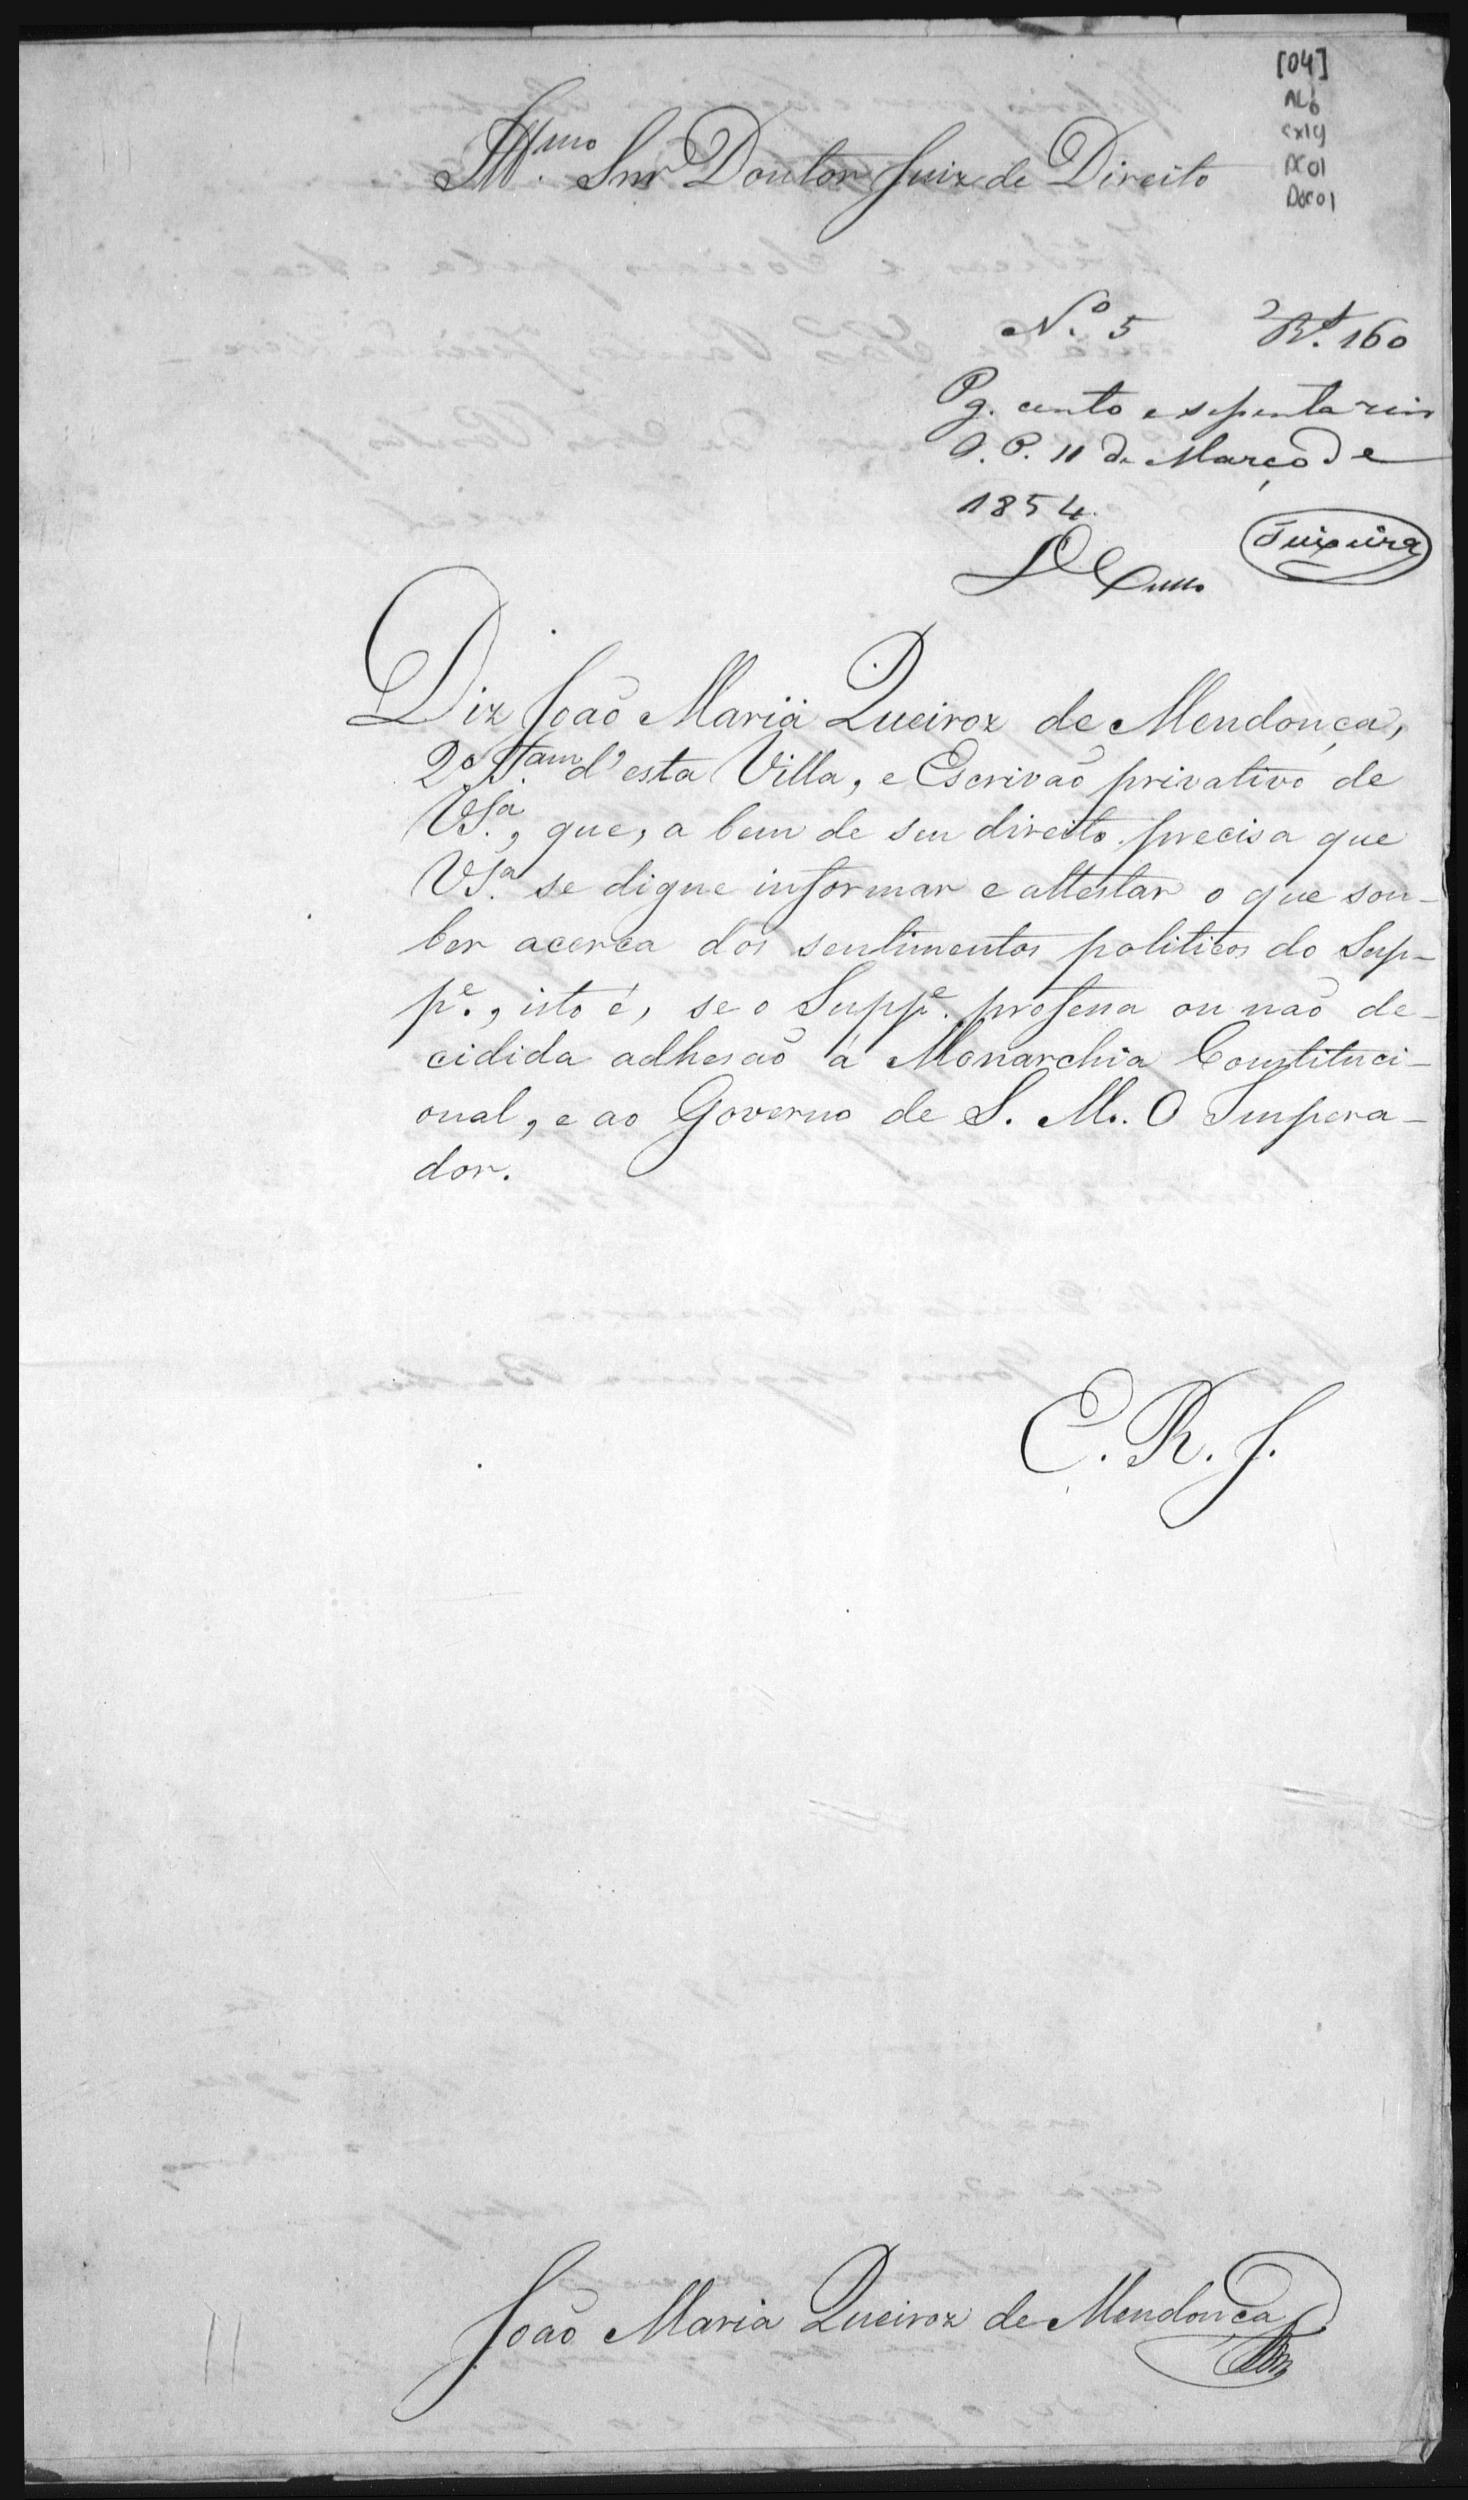 [04]
AL6
cx19
PC01
Doc01
Illmo. Snr Doutor Juiz de Direito
No. 5 Rs. 160
Pg. cento e sesenta reis
O. P. 11 de Março de
1854.
Teixeira
Diz João Maria Queiroz de Mendonça,
2o. Tam d'esta Villa, e Escrivão privativo de
VSa., que, a bem de seu direito precisa que
VSa. se digne informar e attestar o que sou-
ber acerca dos sentimentos politicos do Sup-
pe., isto é, se o Suppe. professa ou não de-
cidida adhesão á Monarchia Constituci-
onal, e ao Governo de S. M. O Impera-
dor.
E. R. J.
João Maria Queiroz de Mendonça